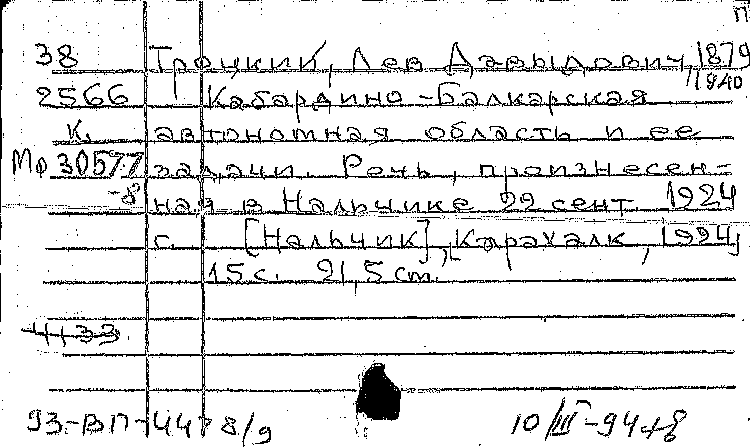 П
38 Троцкий, Лев Давыдович, 1879
1940
2566 Кабардино-Балкарская
к. автономная область и ее
Мф 30577 задачи. Речь, произнесен-
-8 ная в Нальчике 22 сент. 1924
г. [Нальчик], Карахалк, 1924,
15 с. 21,5 cm.
4133
93-ВП-4478/9 10/III-94